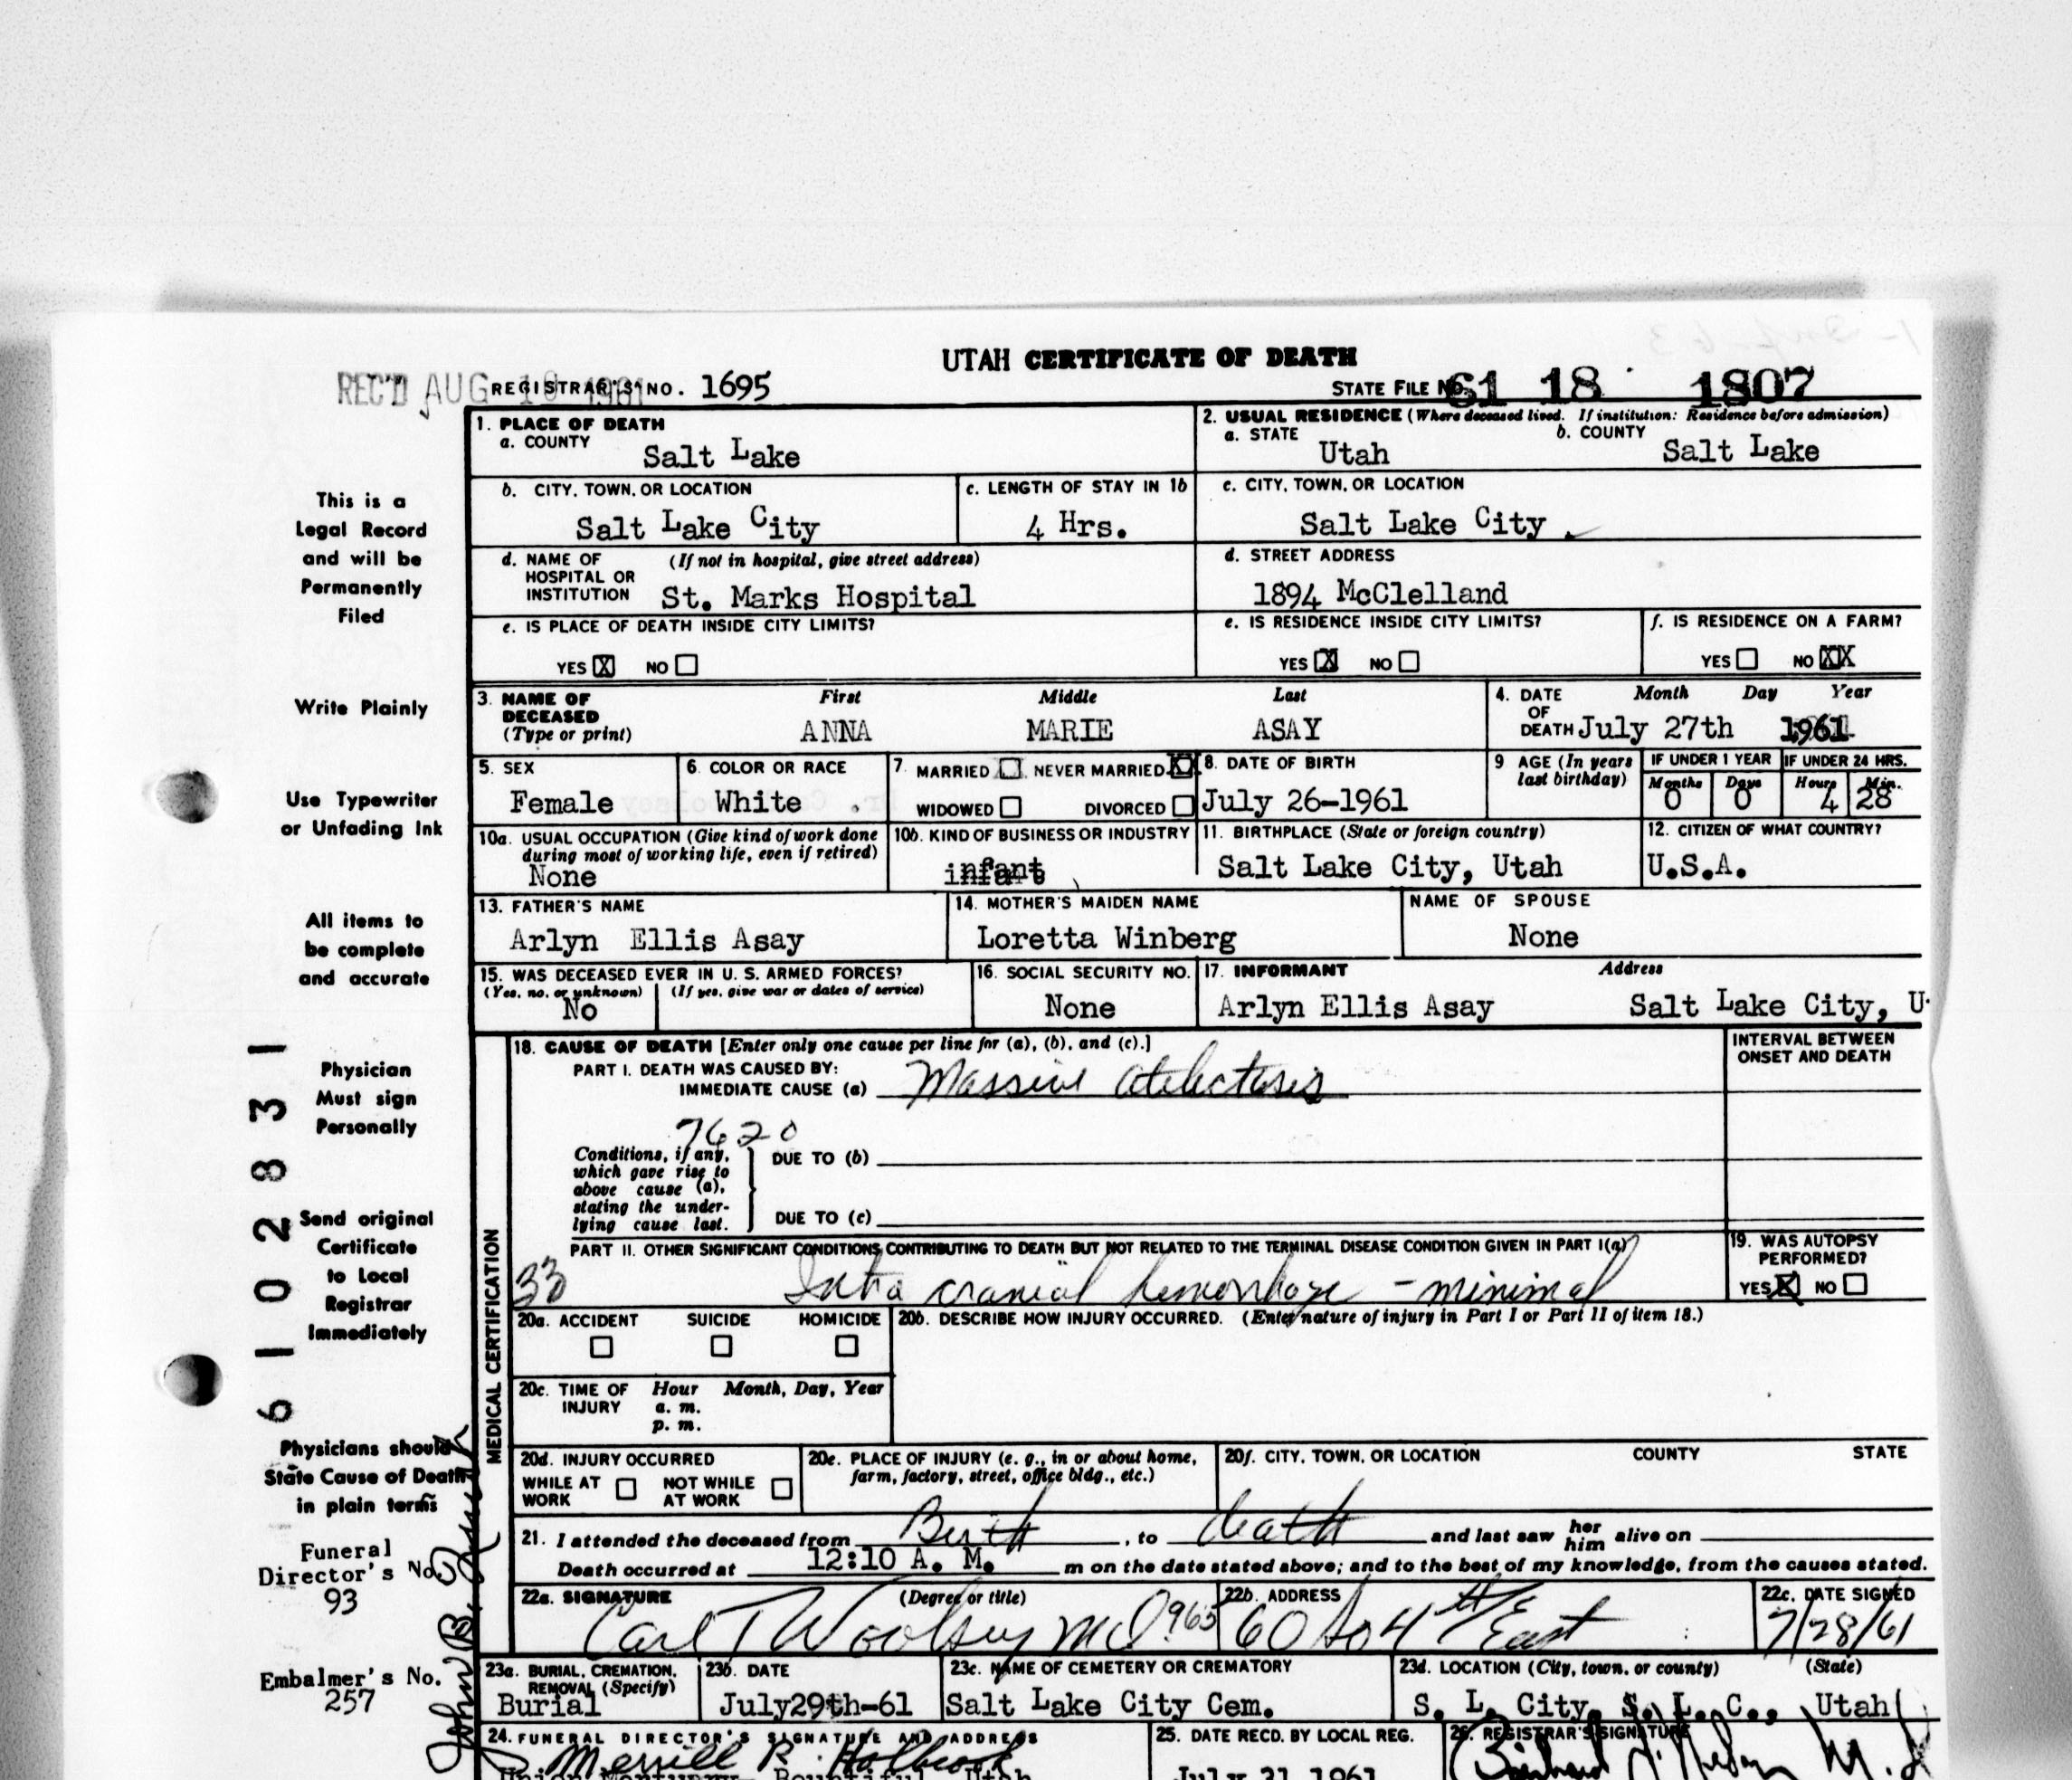 UTAH CERTIFICATE OF DEATH
REC'D AUG 10 1961 REGISTRAR'S NO. 1695 STATE FILE NO. 61 18 1807
1. PLACE OF DEATH
a. COUNTY Salt Lake
2. USUAL RESIDENCE (Where deceased lived. If institution: Residence before admission)
a. STATE Utah b. COUNTY Salt Lake
b. CITY, TOWN, OR LOCATION Salt Lake City
c. LENGTH OF STAY IN 1b 4 Hrs.
c. CITY, TOWN, OR LOCATION Salt Lake City
d. NAME OF HOSPITAL OR INSTITUTION (If not in hospital, give street address) St. Marks Hospital
d. STREET ADDRESS 1894 McClelland
e. IS PLACE OF DEATH INSIDE CITY LIMITS?
YES X NO
e. IS RESIDENCE INSIDE CITY LIMITS?
YES X NO
f. IS RESIDENCE ON A FARM?
YES NO XX
3. NAME OF DECEASED (Type or print) First Middle Last
ANNA MARIE ASAY
4. DATE OF DEATH Month Day Year
July 27th 1961
5. SEX Female
6. COLOR OR RACE White
7. MARRIED NEVER MARRIED X
WIDOWED DIVORCED
8. DATE OF BIRTH July 26-1961
9 AGE (In years last birthday)
IF UNDER 1 YEAR Months 0 Days 0
IF UNDER 24 HRS. Hours 4 Min. 28
10a. USUAL OCCUPATION (Give kind of work done during most of working life, even if retired)
None
10b. KIND OF BUSINESS OR INDUSTRY
infant
11. BIRTHPLACE (State or foreign country)
Salt Lake City, Utah
12. CITIZEN OF WHAT COUNTRY?
U.S.A.
13. FATHER'S NAME
Arlyn Ellis Asay
14. MOTHER'S MAIDEN NAME
Loretta Winberg
NAME OF SPOUSE
None
15. WAS DECEASED EVER IN U. S. ARMED FORCES?
(Yes, no, or unknown) (If yes, give war or dates of service)
No
16. SOCIAL SECURITY NO.
None
17. INFORMANT Address
Arlyn Ellis Asay Salt Lake City, U
MEDICAL CERTIFICATION
18. CAUSE OF DEATH [Enter only one cause per line for (a), (b), and (c).]
PART I. DEATH WAS CAUSED BY:
IMMEDIATE CAUSE (a) Massive atelectasis
7620
Conditions, if any, which gave rise to above cause (a), stating the underlying cause last.
DUE TO (b)
DUE TO (c)
INTERVAL BETWEEN ONSET AND DEATH
PART II. OTHER SIGNIFICANT CONDITIONS CONTRIBUTING TO DEATH BUT NOT RELATED TO THE TERMINAL DISEASE CONDITION GIVEN IN PART I(a)
33 Intra cranial hemorrhage - minimal
19. WAS AUTOPSY PERFORMED?
YES X NO
20a. ACCIDENT SUICIDE HOMICIDE
20b. DESCRIBE HOW INJURY OCCURRED. (Enter nature of injury in Part I or Part II of item 18.)
20c. TIME OF INJURY Hour Month, Day, Year
a. m.
p. m.
20d. INJURY OCCURRED
WHILE AT WORK NOT WHILE AT WORK
20e. PLACE OF INJURY (e. g., in or about home, farm, factory, street, office bldg., etc.)
20f. CITY, TOWN, OR LOCATION COUNTY STATE
21. I attended the deceased from Birth, to death and last saw her him alive on
Death occurred at 12:10 A. M. m on the date stated above; and to the best of my knowledge, from the causes stated.
22a. SIGNATURE (Degree or title)
Carl T Woolsey MD 965
22b. ADDRESS
60 So 4th East
22c. DATE SIGNED
7/28/61
23a. BURIAL, CREMATION, REMOVAL (Specify)
Burial
23b. DATE
July29th-61
23c. NAME OF CEMETERY OR CREMATORY
Salt Lake City Cem.
23d. LOCATION (City, town, or county) (State)
S. L. City, S. L. C., Utah
24. FUNERAL DIRECTOR'S SIGNATURE AND ADDRESS
Merrill R. Holbrook
Union Mortuary- Bountiful, Utah
25. DATE RECD. BY LOCAL REG.
July 31 1961
26. REGISTRAR'S SIGNATURE
M.D.
This is a
Legal Record
and will be
Permanently
Filed
Write Plainly
Use Typewriter
or Unfading Ink
All items to
be complete
and accurate
Physician
Must sign
Personally
Send original
Certificate
to Local
Registrar
Immediately
Physicians should
State Cause of Death
in plain terms
Funeral
Director's No.
93
Embalmer's No.
257
John B.
61 02831